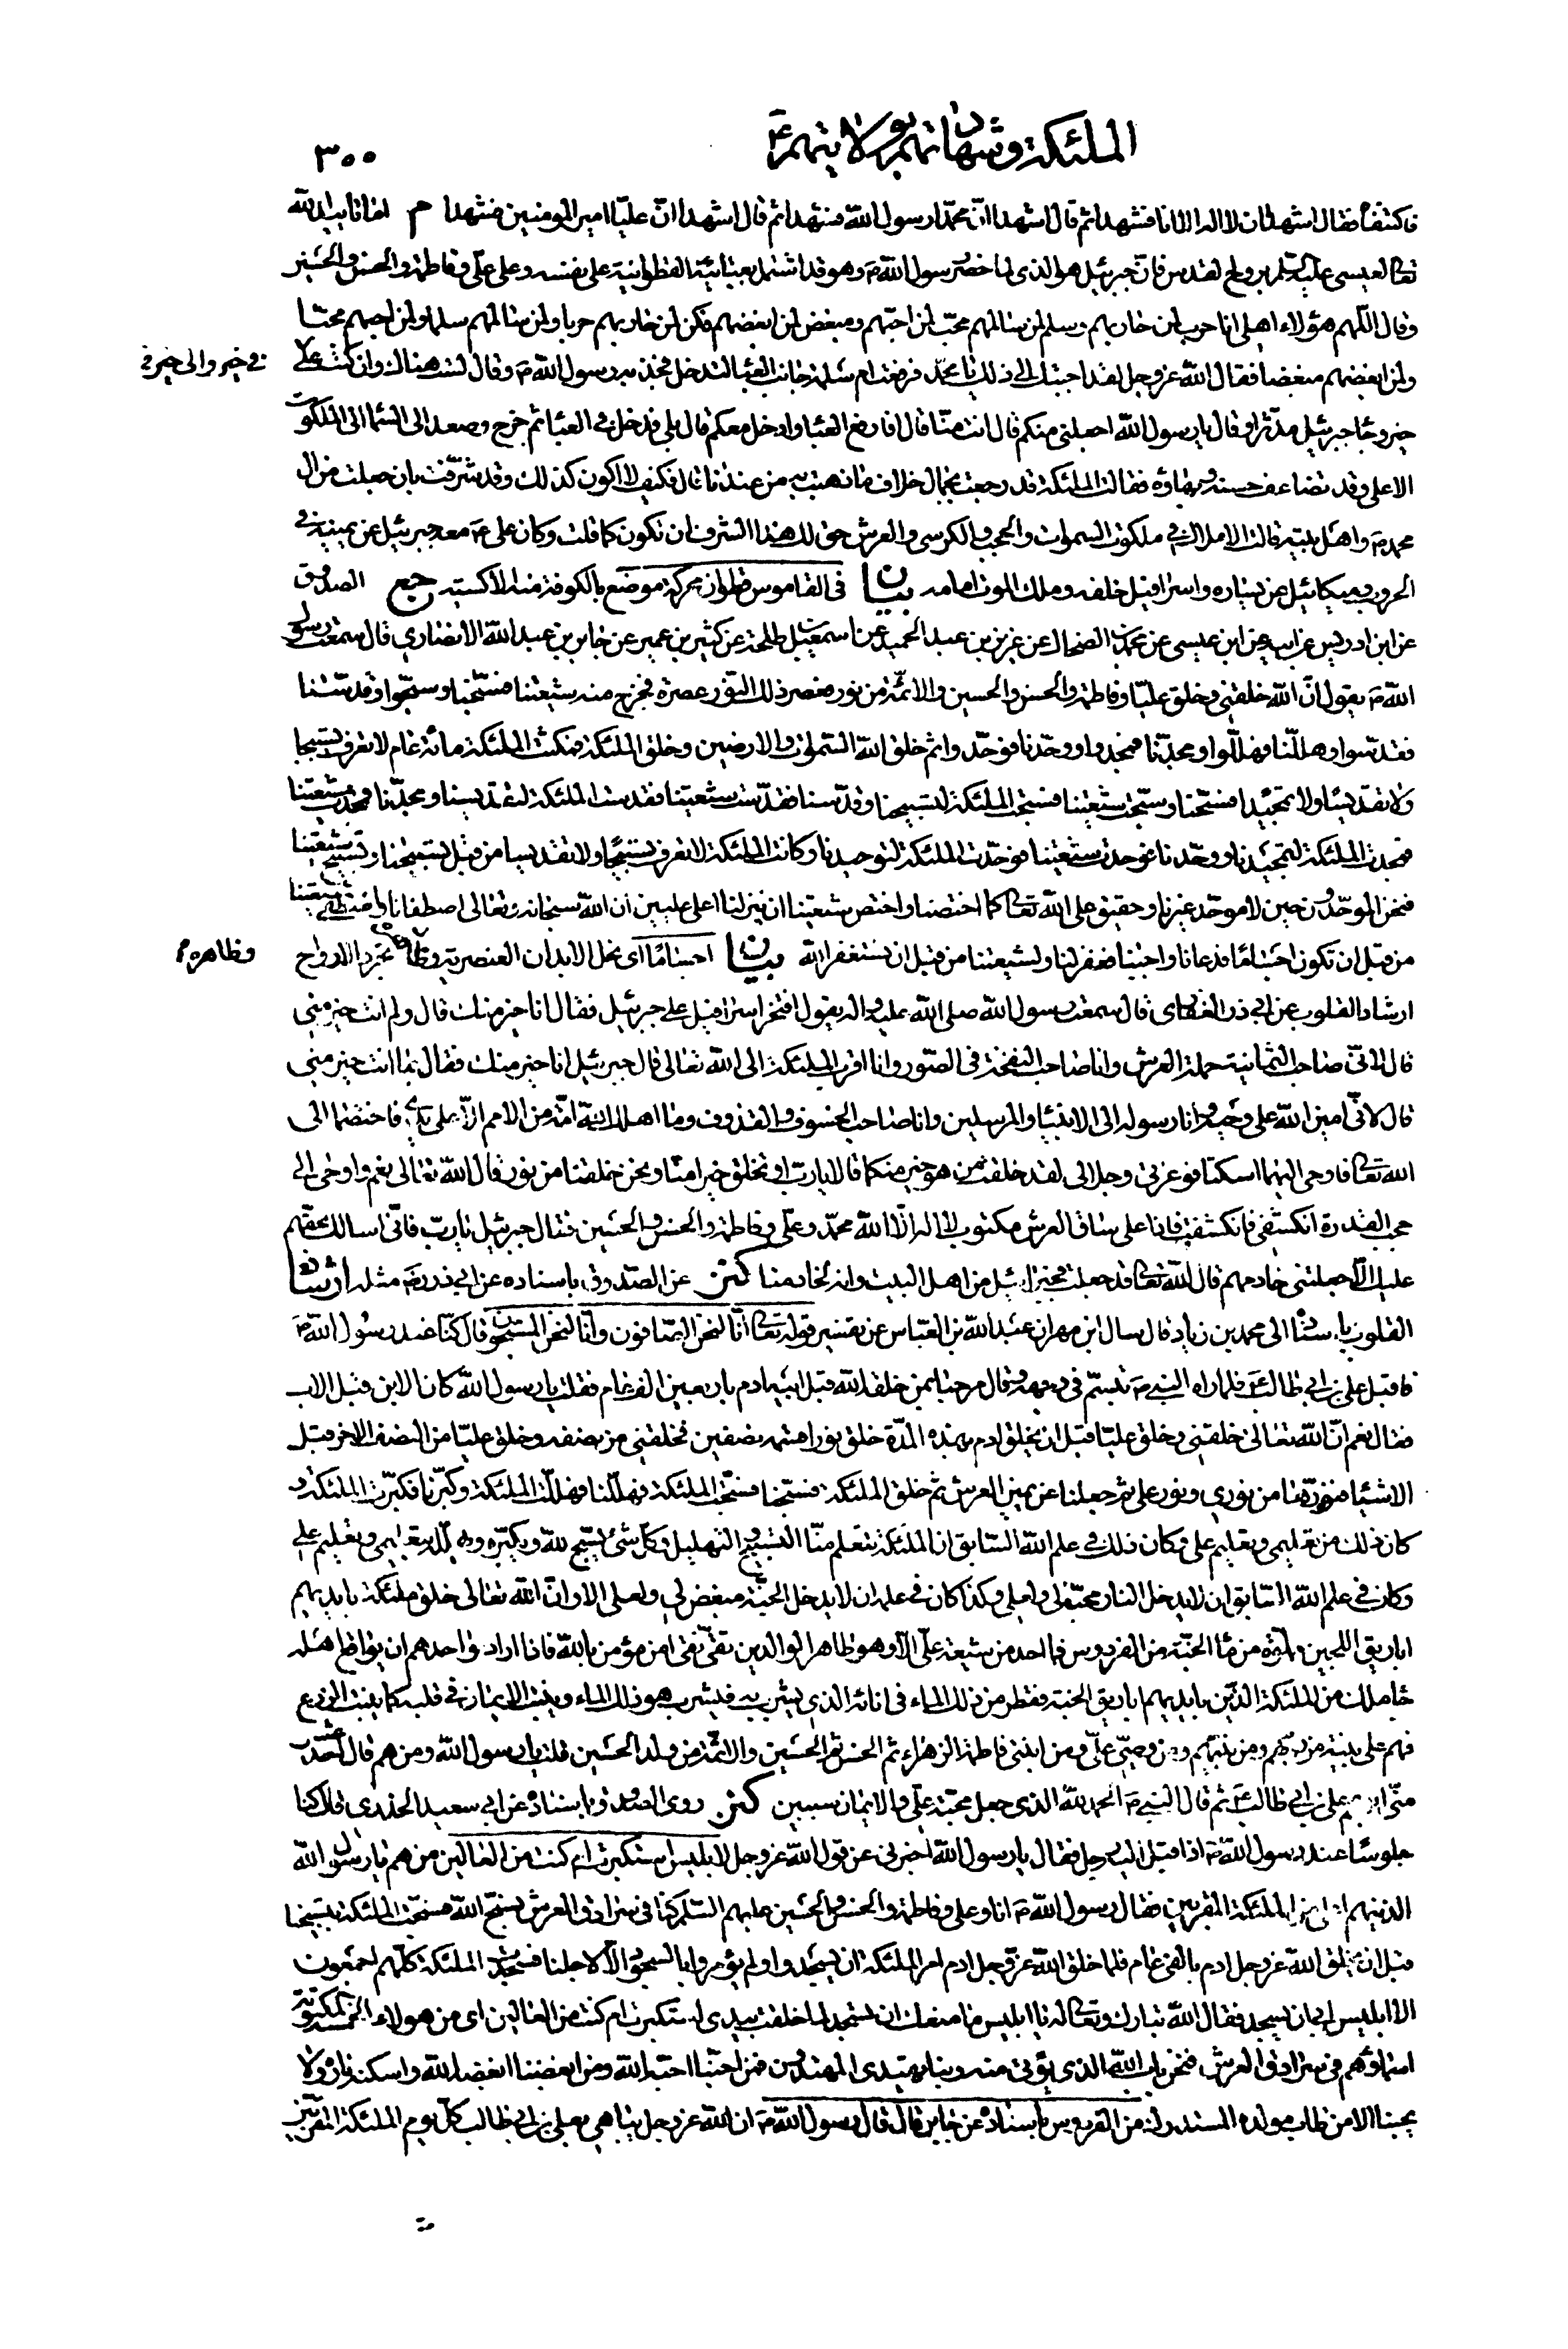 الملئكة وشهادتهم بولايتهم ع
٣٠٠
فاكتنفاه فقال اشهدا ان لا اله الا انا فشهدا ثم قال اشهدا ان محمدا رسول الله فشهدا ثم قال اشهدا ان عليا امير المومنين فشهدا م اما تاييد الله
تعالى لعيسى عليه السلم بروح القدس فان جبرئيل هو الذى لما حضر رسول الله ص وهو قد اشتمل بعبائته القطوانية على نفسه وعلى علي وفاطمة والحسن والحسين
وقال اللهم هؤلاء اهلى انا حرب لمن حاربهم وسلم لمن سالمهم محب لمن احبهم ومبغض لمن ابغضهم فكن لمن حاربهم حربا ولمن سالمهم سلما ولمن احبهم محبا
ولمن ابغضهم مبغضا فقال الله عز وجل لقد اجبتك الى ذلك يا محمد فرفعت ام سلمة جانب العبا لتدخل فجذبه رسول الله ص وقال لست هناك وان كنت على
في خير والى خير
خير وجا جبرئيل مدثرا وقال يا رسول الله اجعلنى منكم قال انت منا قال افارفع العبا وادخل معكم قال بلى فدخل في العبا ثم خرج وصعد الى السما الى الملكوت
الاعلى وقد تضاعف حسنه وبهاؤه فقالت الملئكة قد رجعت بجمال خلاف ما ذهبت به من عندنا قال فكيف لا اكون كذلك وقد شرفت بان جعلت من ال
محمد ص واهل بيته قالت الاملاك في ملكوت السموات والحجب والكرسى والعرش حق لك هذا الشرف ان تكون كما قلت وكان على ع معه جبرئيل عن يمينه في
الحروب وميكائيل عن يساره واسرافيل خلفه وملك الموت امامه بيان فى القاموس قطوان محركة موضع بالكوفة منه الاكسية جع الصدوق
عن ابن ادريس عن ابيه عن ابن عيسى عن محمد بن الضحاك عن عزيز بن عبد الحميد عن اسمعيل بن طلحة عن كثير بن عمير عن جابر بن عبد الله الانصاري قال سمعت رسول
الله ص يقول ان الله خلقنى وخلق عليا وفاطمة والحسن والحسين والائمة من نور فعصر ذلك النور عصرة فخرج منه شيعتنا فسبحنا وسبحوا وقدسنا
فقدسوا وهللنا فهللوا ومجدنا فمجدوا ووحدنا فوحدوا ثم خلق الله السموات والارضين وخلق الملئكة فمكثت الملئكة مائة عام لا تعرف تسبيحا
ولا تقديسا ولا تمجيدا فسبحنا وسبحت شيعتنا فسبحت الملئكة لتسبيحنا وقدسنا فقدست شيعتنا فقدست الملئكة لتقديسنا ومجدنا فمجدت شيعتنا
فمجدت الملئكة لتمجيدنا ووحدنا فوحدت شيعتنا فوحدت الملئكة لتوحيدنا وكانت الملئكة لا تعرف تسبيحا ولا تقديسا من قبل تسبيحنا وتسبيح شيعتنا
فنحن الموحدون حين لا موحد غيرنا وحقيق على الله تعالى كما اختصنا واختص شيعتنا ان ينزلنا اعلى عليين ان الله سبحانه وتعالى اصطفانا واصطفى شيعتنا
من قبل ان نكون اجساما فدعانا واجبنا فغفر لنا ولشيعتنا من قبل ان نستغفر الله بيان اجساما اى نحل الابدان العنصرية وظا تجرد الارواح
وظاهره
ارشاد القلوب عن ابى ذر الغفارى قال سمعت رسول الله صلى الله عليه واله يقول افتخر اسرافيل على جبرئيل فقال انا خير منك قال ولم انت خير منى
قال لانى صاحب الثمانية حملة العرش وانا صاحب النفخة فى الصور وانا اقرب الملئكة الى الله تعالى قال جبرئيل انا خير منك فقال بما انت خير منى
قال لانى امين الله على وحيه وانا رسوله الى الانبيا والمرسلين وانا صاحب الخسوف والقذوف وما اهلك الله امة من الامم الا على يدي فاختصما الى
الله تعالى فاوحى اليهما اسكتا فوعزتى وجلالى لقد خلقت من هو خير منكما قالا يا رب او تخلق خيرا منا ونحن خلقنا من نور قال الله تعالى نعم واوحى الى
حجب القدرة انكشفى فانكشفت فاذا على ساق العرش مكتوب لا اله الا الله محمد وعلى وفاطمة والحسن والحسين فقال جبرئيل يا رب فانى اسالك بحقهم
عليك الا جعلتنى خادمهم قال الله تعالى قد جعلت فجبرائيل من اهل البيت وانه لخادمنا كنز عن الصدوق باسناده عن ابي ذر رض مثله ارشاد
القلوب باسناده الى محمد بن زياد قال سال ابن مهران عبد الله بن العباس عن تفسير قوله تعالى انا لنحن الصافون وانا لنحن المسبحون قال كنا عند رسول الله ص
فاقبل على بن ابى طالب ع فلما راه النبى ص تبسم فى وجهه وقال مرحبا بمن خلقه الله قبل ابيه ادم باربعين الف عام فقلت يا رسول الله كان الابن قبل الاب
فقال نعم ان الله تعالى خلقنى وخلق عليا قبل ان يخلق ادم بهذه المدة خلق نورا فقسمه نصفين فخلقنى من نصفه وخلق عليا من النصف الاخر قبل
الاشيا فنورها من نورى ونور على ثم جعلنا عن يمين العرش ثم خلق الملئكة فسبحنا فسبحت الملئكة فهللنا فهللت الملئكة وكبرنا فكبرت الملئكة و
كان ذلك من تعليمى وتعليم على وكان ذلك في علم الله السابق ان الملئكة تتعلم منا التسبيح والتهليل وكل شئ يسبح لله ويكبره ويهلله بتعليمى وتعليم على
وكان فى علم الله السابق ان لا يدخل النار محب لى ولعلى وكذا كان في علمه ان لا يدخل الجنة مبغض لي ولعلى الا وان الله تعالى خلق ملئكة بايديهم
اباريق اللجين مملوة من ماء الجنة من الفردوس فما احد من شيعة علي الا وهو طاهر الوالدين تقى نقى امن مؤمن بالله فاذا اراد واحدهم ان يواقع اهله
جا ملك من الملئكة الذين بايديهم اباريق الجنة فقطر من ذلك الماء فى انائه الذى يشرب به فيشرب هو ذلك الماء وينبت الايمان في قلبه كما ينبت الزرع
فهم على بينة من ربهم ومن نبيهم ومن وصيى علي ومن ابنتى فاطمة الزهراء ثم الحسن ثم الحسين والائمة من ولد الحسين قلت يا رسول الله ومن هم قال احد عشر
منى ابوهم على بن ابى طالب ع ثم قال النبى ص الحمد لله الذى جعل محبة على والايمان سببين كنز روى الصدوق باسناده عن ابى سعيد الخدرى قال كنا
جلوسا عند رسول الله ص اذ اقبل اليه رجل فقال يا رسول الله اخبرنى عن قول الله عز وجل لابليس استكبرت ام كنت من العالين من هم يا رسول الله
الذين هم اعلى من الملئكة المقربين فقال رسول الله ص انا وعلى وفاطمة والحسن والحسين عليهم السلم كنا فى سرادق العرش نسبح الله فسبحت الملئكة بتسبيحنا
قبل ان يخلق الله عز وجل ادم بالفى عام فلما خلق الله عز وجل ادم امر الملئكة ان يسجدوا ولم يؤمروا بالسجود الا لاجلنا فسجدت الملئكة كلهم اجمعون
الا ابليس ابى ان يسجد فقال الله تبارك وتعالى له يا ابليس ما منعك ان تسجد لما خلقت بيدى استكبرت ام كنت من العالين اى من هولاء الخمسة المكتوبة
اسماؤهم فى سرادق العرش فنحن باب الله الذى يؤتى منه وبنا يهتدى المهتدون فمن احبنا احبه الله ومن ابغضنا ابغضه الله واسكنه ناره ولا
يحبنا الا من طاب مولده المستدرك من الفردوس باسناده عن جابر قال قال رسول الله ص ان الله عز وجل يباهى بعلى بن ابى طالب كل يوم الملئكة المقربين